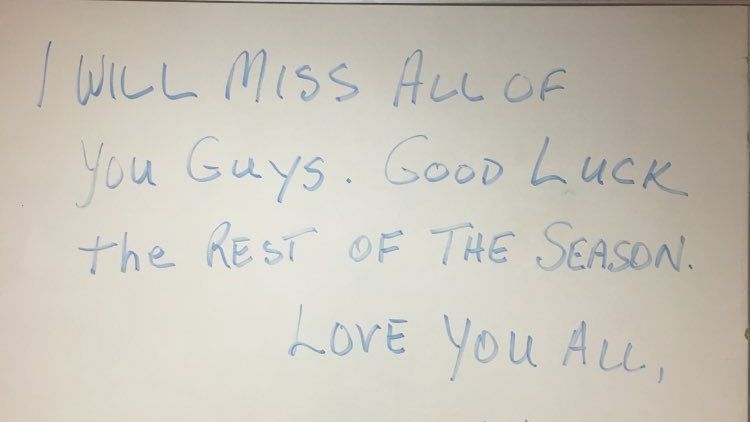 I WILL MISS ALL OF
you Guys. GOOD LUCK
the REST OF THE SEASON.
LOVE YOU ALL,